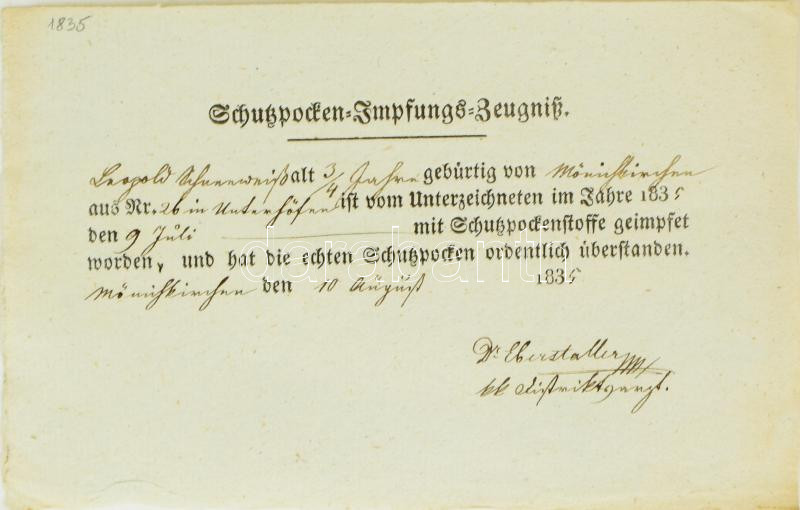 1835
Schutzpocken-Impfungs-Zeugniß.
Leopold Schneeweiß alt 3/4 Jahre gebürtig von Mönichkirchen
aus Nr. 26 in Unterhöfen ist vom Unterzeichneten im Jahre 1835
den 9 Juli mit Schutzpockenstoffe geimpfet
worden, und hat die echten Schutzpocken ordentlich überstanden.
Mönichkirchen den 10 August 1835
Dr Eberstaller
kk Distriktsarzt.
darabanth